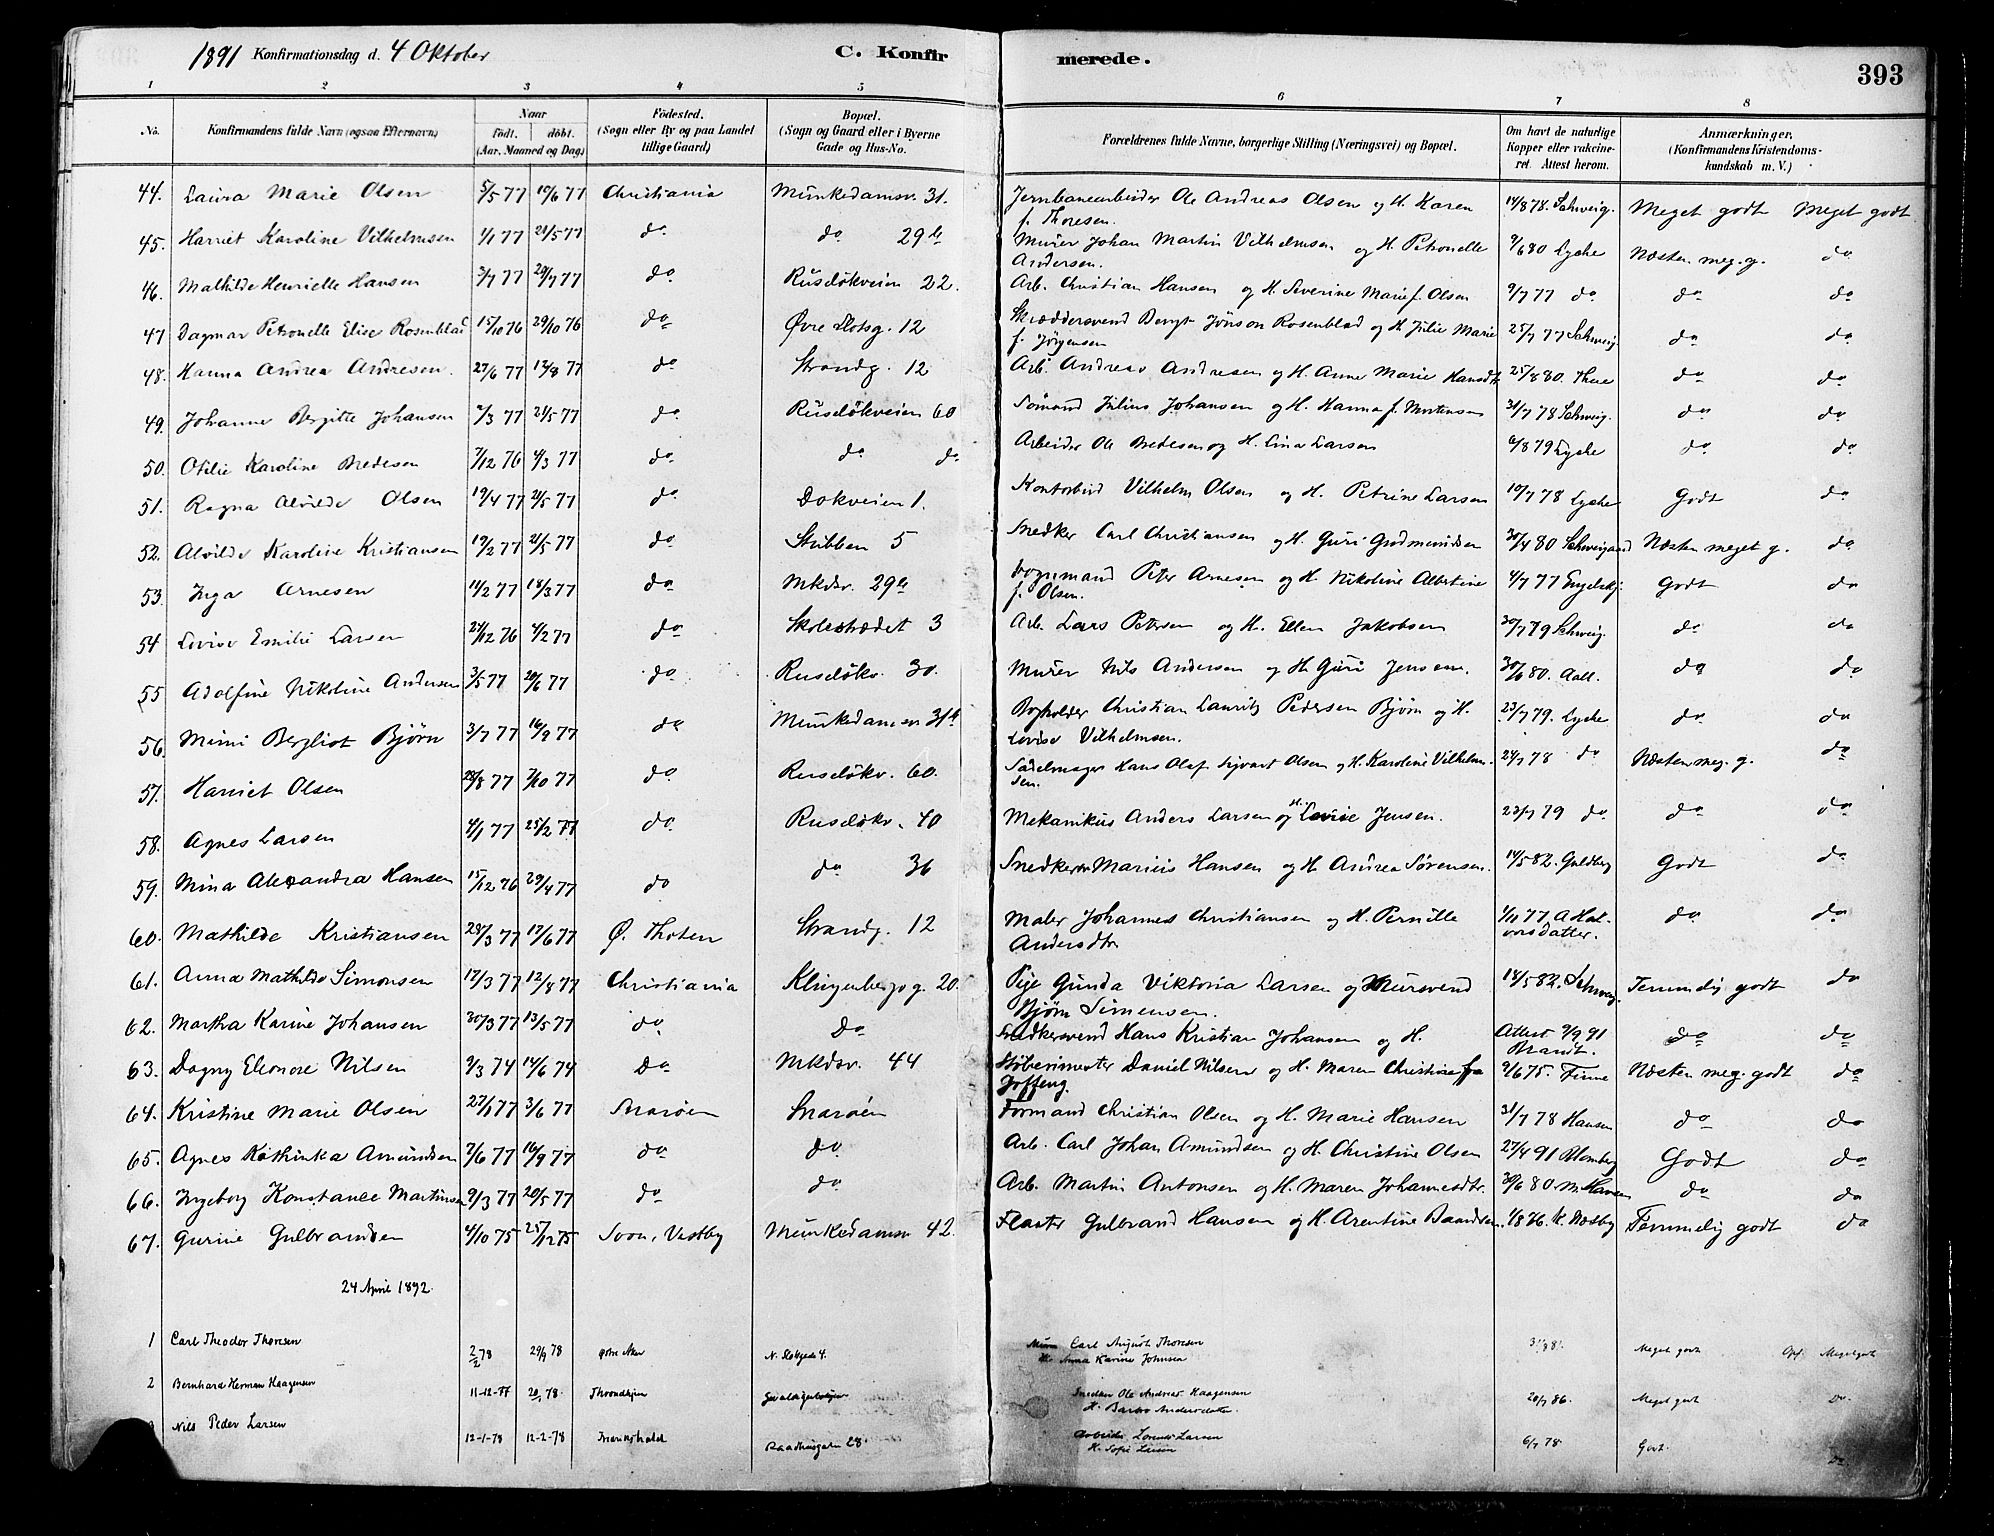 1891 Konfirmationsdag d. 4 Oktober C. Konfirmerede. 393
1 2 3 4 5 6 7 8
No. Konfirmandens fulde Navn (ogsaa Efternavn) Naar født. døbt. (Aar, Maaned og Dag) Fødested. (Sogn eller By og paa Landet tillige Gaard) Bopæl. (Sogn og Gaard eller i Byerne Gade og Hus-No. Forældrenes fulde Navne, borgerlige Stilling (Næringsvei) og Bopæl. Om havt de naturlige Kopper eller vakcineret. Attest herom. Anmærkninger. (Konfirmandens Kristendomskundskab m. V.)
44. Laura Marie Olsen 5/5 77 10/6 77 Christiania Munkedamsv. 31. Jernbanearbeider Ole Andreas Olsen og H. Karen f. Thoresen. 14/8 78. Schweig. Meget godt Meget godt
45. Harriet Karoline Vilhelmsen 1/1 77 21/5 77 do do 29 b Murer Johan Martin Vilhelmsen og H. Petronelle Andersen. 9/6 80 Lyche Næsten meg. g. do
46. Mathilde Henriette Hansen 3/7 77 29/7 77 do Ruseløkveien 22. Arb. Christian Hansen og H. Severine Marie f. Olsen 9/7 77 do do do
47 Dagmar Petronelle Elise Rosenblad 15/10 76 29/10 76 do Øvre Slotsg. 12 Skræddersvend Bengt Jönson Rosenblad og H Julie Marie f. Jørgensen 25/7 77 Schweig. do do
48. Hanna Andrea Andresen. 27/6 77 12/8 77 do Strandg. 12 Arb. Andreas Andresen og H. Anne Marie Hansdt. 25/8 80. do do
49. Johanne Bergitte Johansen 2/3 77 21/5 77 do Rusløkveien 60 Sømand Julius Johansen og H. Hanna f. Mortensen 31/7 78 Schweig. do do
50. Otilie Karoline Bredesen 7/12 76 4/3 77 do do do Arbeider Ole Bredesen og H. Lina Larsen 6/8 79 Lyche do do
51. Ragna Alvilde Olsen 19/4 77 21/5 77 do Dokveien 1. Kontorbud Vilhelm Olsen og H. Petrine Larsen 10/7 78 Lyche Godt do
52. Alvilde Karoline Kristiansen 19/2 77 21/5 77 do Stubben 5 Snedker Carl Christiansen og H. Guri Gudmundsen 30/4 80 Schweigaard Næsten meget g. do
53. Inga Arnesen 11/2 77 18/3 77 do Mkdsv. 29 b Vognmand Peter Arnesen og H. Nikoline Albertine f. Olsen. 4/7 77 Engelskj. Godt do
54 Lovise Emilie Larsen 24/12 76 4/2 77 do Skolestrædet 3 Arb. Lars Petersen og H. Ellen Jakobsen 30/7 79 Schweig. do do
55 Adolfine Nikoline Andersen 3/5 77 20/6 77 do Rusløkv. 30. Murer Nils Andersen og H. Guri Jensen. 30/6 80. Aall. do do
56. Mimi Bergliot Bjørn 3/7 77 16/9 77 do Munkedamsv 31 b Bogholder Christian Lauritz Pedersen Bjørn og H. Lovise Vilhelmsen. 23/7 79. Lyche do do
57. Harriet Olsen 28/8 77 7/10 77 do Rusløkv. 60. Sadelmager Hans Olaf Sigvart Olsen og H. Karoline Vilhelmsen. 24/7 78 do Næsten meg. g. do
58. Agnes Larsen 4/1 77 25/2 77 do Rusløkv. 40 Mekanikus Anders Larsen og H. Lovise Jensen. 23/7 79 do do do
59. Mina Alexandra Hansen 15/12 76 29/4 77 do do 36 Snedker Marius Hansen og H. Andrea Sørensen. 14/5 82. Guldberg Godt do
60. Mathilde Kristiansen 28/3 77 17/6 77 Ø. Thoten Strandg. 12 Maler Johannes Christiansen og H. Pernille Andersdtr. 1/11 77. A Halvorsdatter. do do
61. Anna Mathilde Simonsen 17/3 77 12/8 77 Christiania Klingenbergg. 20. Pige Gunda Viktoria Larsen og Mursvend Bjørn Simensen. 18/5 82. Schweig. Temmelig godt do
62. Martha Karine Johansen 30/3 77 13/5 77 do Do Snedkersvend Hans Kristian Johansen og H. Attest 9/9 91 Brandt. do do
63. Dagny Eleonore Nilsen 9/3 74 14/6 74 Do Mkdsv. 44 Støberimester Daniel Nilsen og H. Maren Christine 9/6 75. Finne Næsten meg. godt do
64. Kristine Marie Olsen 27/1 77 3/6 77 Snarøen Snarøen Formand Christian Olsen og H. Marie Hansen 31/7 78 Hansen do do
65. Agnes Kathinka Amundsen 2/6 77 16/9 77 do do Arb. Carl Johan Amundsen og H. Christine Olsen 27/4 91 Blomberg Godt do
66. Ingeborg Konstance Martinsen 9/3 77 20/5 77 do do Arb. Martin Antonsen og H. Maren Johannesdtr. 30/6 80. M. Hansen do do
67. Gurine Gulbrandsen 4/10 75 25/12 75 Soon, Vestby Munkedamsv 42. Gulbrand Hansen og H. Arentine Baardsen. 1/8 76. K. Næsby Temmelig godt do
24 April 1892.
1 Carl Theodor Thoresen 2/2 78 29/9 78 Østre Aker N. Slotsgade 4. Murer Carl August Thoresen H. Anna Karine Johnsen Meget godt Opf. Meget godt
2 Bernhard Herman Haagensen 11-12-77 20/1 78. Throndhjem Snedker Ole Andreas Haagensen H. Barbro Andersdatter. 20/7 86. Meget godt Do.
Nils Peder Larsen 12-1-78 12-2-78 Fredrikshald Raadhusgaden 28. Arbeider Lorents Larsen H. Sofie Larsen 6/7 78 Godt. Do